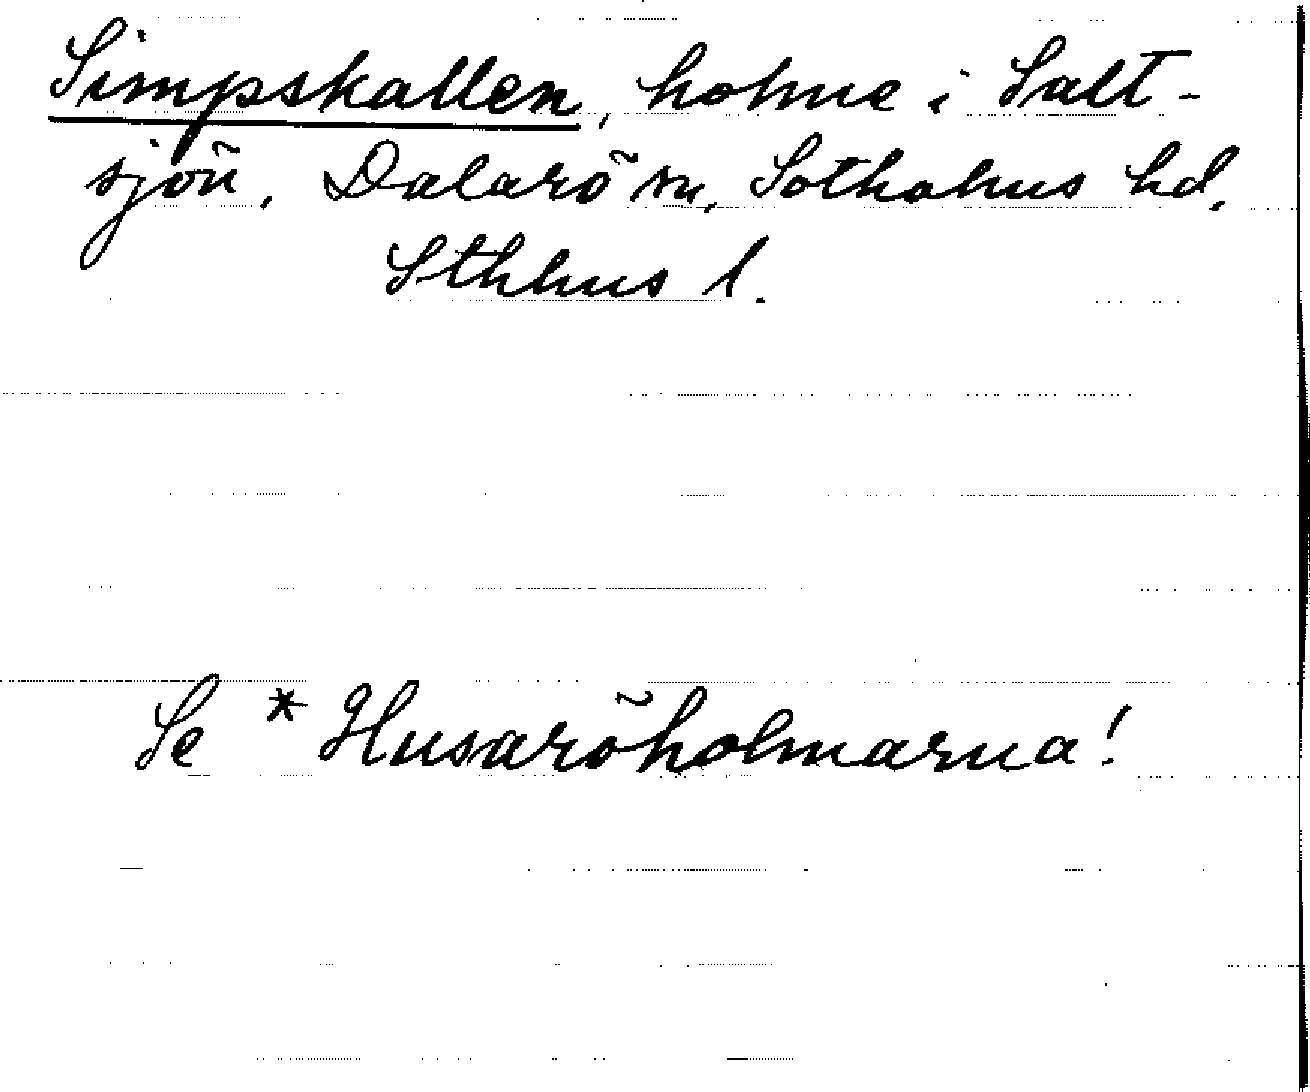 Simpskallen, holme i Salt-
sjön, Dalarö sn, Sotholms hd,
Sthlms l.
Se * Husaröholmarna!